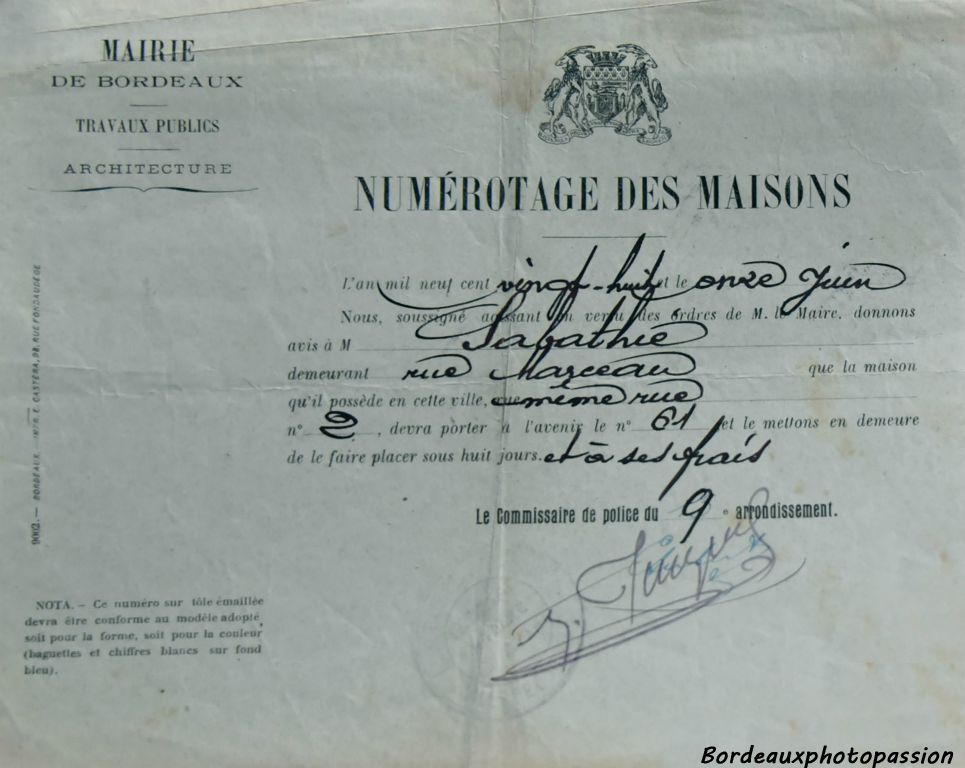 MAIRIE
DE BORDEAUX
TRAVAUX PUBLICS
ARCHITECTURE
NUMÉROTAGE DES MAISONS
L'an mil neuf cent vingt-huit et le onze Juin
Nous, soussigné agissant en vertu des ordres de M. le Maire, donnons
avis à M Labathie
demeurant rue Marceau que la maison
qu'il possède en cette ville, même rue
n° 2, devra porter à l'avenir le n° 61 et le mettons en demeure
de le faire placer sous huit jours. et à ses frais
Le Commissaire de police du 9e arrondissement.
9002. — BORDEAUX. IMPR. E. CASTERA, 28, RUE FONDAUDÈGE
NOTA. — Ce numéro sur tôle émaillée
devra être conforme au modèle adopté,
soit pour la forme, soit pour la couleur
(baguettes et chiffres blancs sur fond
bleu).
Bordeauxphotopassion